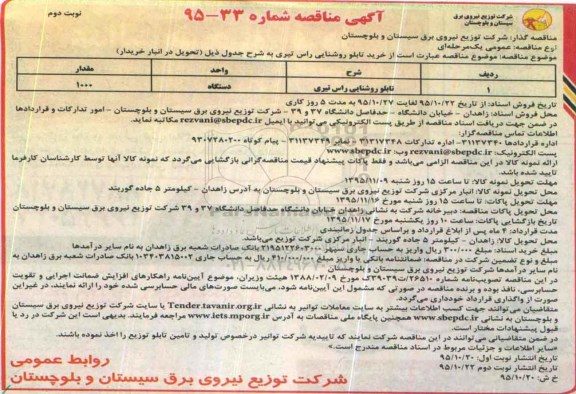 نوبت دوم
آگهی مناقصه شماره ۳۳-۹۵
شرکت توزیع نیروی برق
سیستان و بلوچستان
مناقصه گذار: شرکت توزیع نیروی برق سیستان و بلوچستان
نوع مناقصه: عمومی یک مرحله‌ای
موضوع مناقصه: موضوع مناقصه عبارت است از خرید تابلو روشنایی راس تیری به شرح جدول ذیل (تحویل در انبار خریدار)
ردیف شرح واحد مقدار
۱ تابلو روشنایی راس تیری دستگاه ۱۰۰۰
تاریخ فروش اسناد: از تاریخ ۹۵/۱۰/۲۲ لغایت ۹۵/۱۰/۲۷ به مدت ۵ روز کاری
محل فروش اسناد: زاهدان - خیابان دانشگاه - حدفاصل دانشگاه ۳۷ و ۳۹ - شرکت توزیع نیروی برق سیستان و بلوچستان - امور تدارکات و قراردادها
در ضمن جهت دریافت اسناد مناقصه از طریق پست الکترونیکی می‌توانید با ایمیل rezvani@sbepdc.ir مکاتبه نمایید.
اطلاعات تماس مناقصه‌گزار:
اداره قراردادها ۳۱۱۳۷۳۴۰ - اداره تدارکات ۳۱۱۳۷۳۴۸ - نمابر ۳۱۱۳۷۳۴۹ - پیام کوتاه
پست الکترونیک: rezvani@sbepdc.ir وب: www.sbepdc.ir
ارائه نمونه کالا در این مناقصه الزامی می‌باشد و فقط پاکات پیشنهاد قیمت مناقصه‌گرانی بازگشایی می‌گردد که نمونه کالا آنها توسط کارشناسان کارفرما
تایید شده باشد.
مهلت تحویل نمونه کالا: تا ساعت ۱۵ روز شنبه ۱۳۹۵/۱۱/۰۹
محل تحویل نمونه کالا: انبار مرکزی شرکت توزیع نیروی برق سیستان و بلوچستان به آدرس زاهدان - کیلومتر ۵ جاده گوربند
مهلت تحویل پاکات: تا ساعت ۱۵ روز شنبه مورخ ۱۳۹۵/۱۱/۱۶
محل تحویل پاکات مناقصه: دبیرخانه شرکت به نشانی زاهدان خیابان دانشگاه حدفاصل دانشگاه ۳۷ و ۳۹ شرکت توزیع نیروی برق سیستان و بلوچستان
تاریخ بازگشایی پاکات: ساعت ۱۰ روز یکشنبه مورخ ۱۳۹۵/۱۱/۱۷
مدت قرارداد: ۴ ماه پس از ابلاغ قرارداد و براساس جدول زمانبندی
محل تحویل کالا: زاهدان - کیلومتر ۵ جاده گوربند - انبار مرکزی شرکت توزیع می‌باشد.
مبلغ خرید اسناد: مبلغ ۳۰۰/۰۰۰ ریال واریز به حساب جاری سپهر بانک صادرات شعبه برق زاهدان به نام سایر درآمدها
مبلغ و نوع تضمین شرکت در مناقصه: ضمانتنامه بانکی یا واریز مبلغ ریال به حساب جاری بانک صادرات شعبه برق زاهدان به
نام سایر درآمدها شرکت توزیع نیروی برق سیستان و بلوچستان
در این مناقصه تصویب‌نامه شماره مورخ ۱۳۸۸/۰۲/۰۹ هیئت وزیران، موضوع آیین‌نامه راهکارهای افزایش ضمانت اجرایی و تقویت
حسابرسی، نافذ بوده و برنده مناقصه در صورتی که مشمول این آیین‌نامه شود، می‌بایست صورت‌های مالی حسابرسی شده خود را ارائه نمایند، در غیراین
صورت از واگذاری قرارداد خودداری می‌گردد.
متقاضیان می‌توانند جهت کسب اطلاعات بیشتر به سایت معاملات توانیر به نشانی Tender.tavanir.org.ir یا سایت شرکت توزیع نیروی برق سیستان
و بلوچستان به نشانی www.sbepdc.ir همچنین پایگاه ملی مناقصات به آدرس www.iets.mporg.ir مراجعه فرمایند. بدیهی است این شرکت در رد یا
قبول پیشنهادات مختار است.
در ضمن متقاضیانی می‌توانند در این مناقصه شرکت نمایند که تاییدیه شرکت توانیر درخصوص تولید و تامین تابلو توزیع را اخذ نموده باشند.
«سایر اطلاعات و جزئیات مربوط در اسناد مناقصه مندرج است.»
تاریخ انتشار نوبت اول: ۹۵/۱۰/۲۰
تاریخ انتشار نوبت دوم ۹۵/۱۰/۲۲
خ ش: ۹۵/۱۰/۲۰
روابط عمومی
شرکت توزیع نیروی برق سیستان و بلوچستان